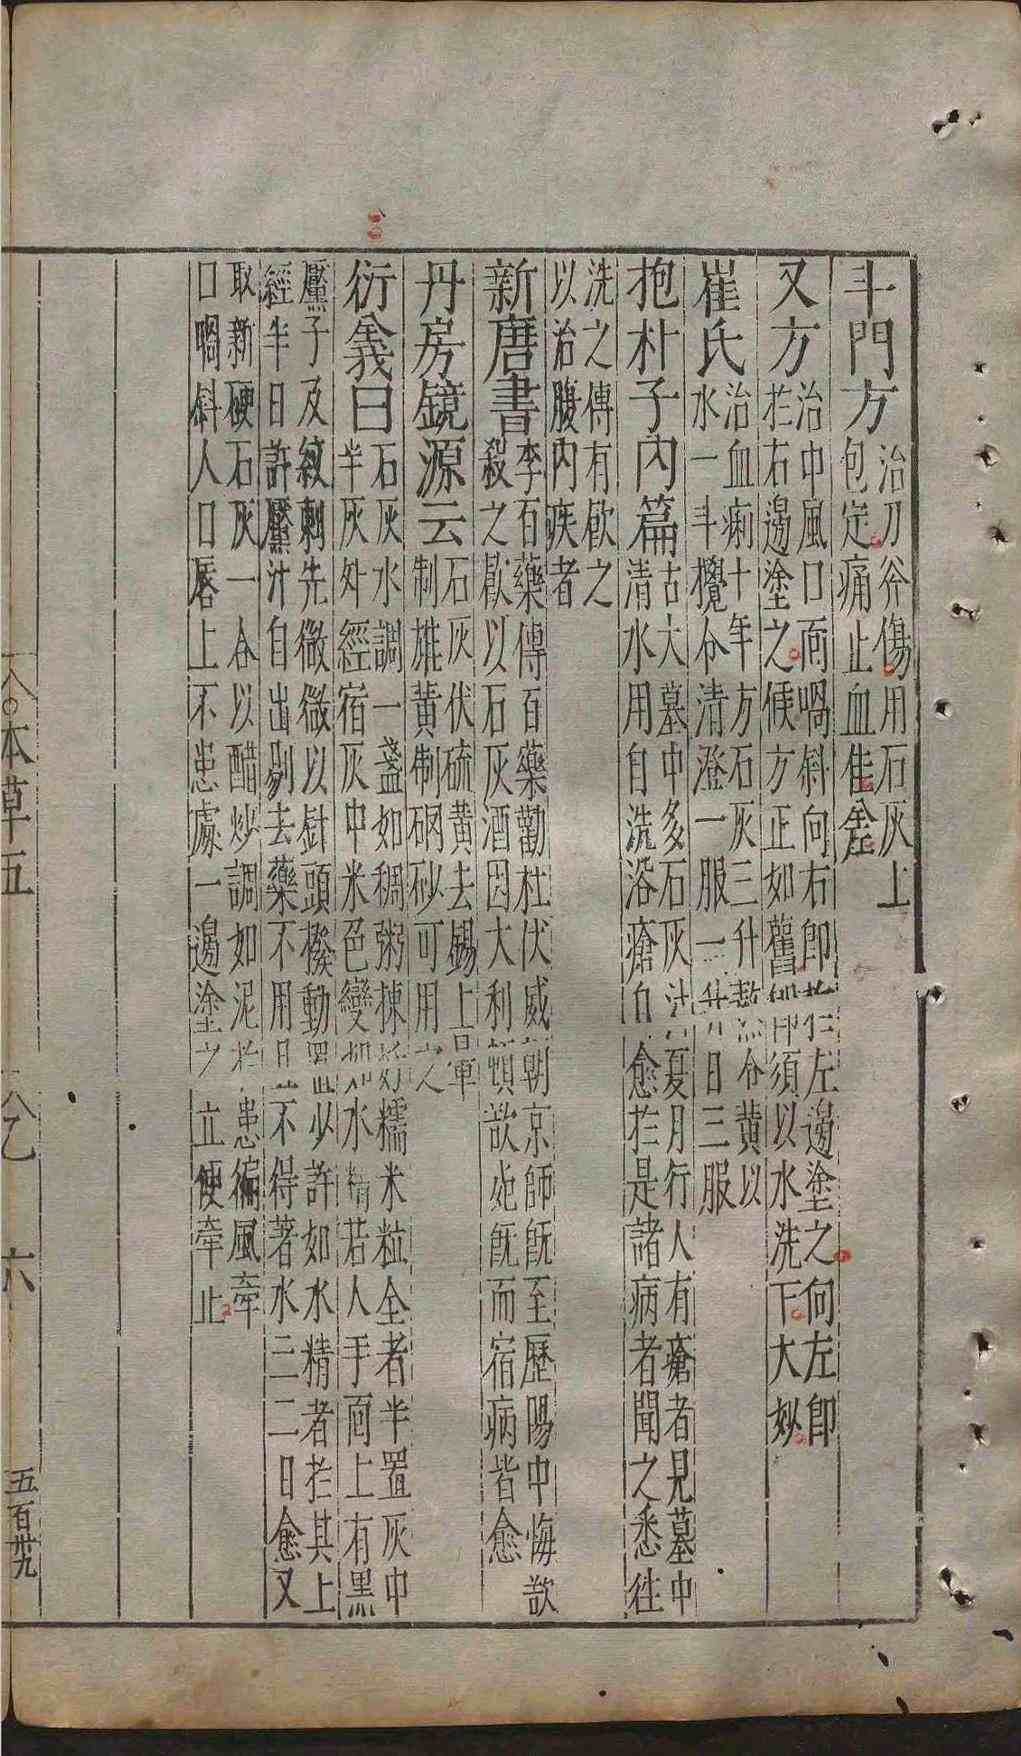 斗門方治刀斧傷用石灰上
包定痛止血佳差
又方治中風口面喎斜向右即扵左邊塗之向左即
扵右邊塗之候方正如舊即須以水洗下大妙
崔氏治血痢十年方石灰三升熬令黄以
水一斗攪令清澄一服一升日三服
抱朴子内篇古大墓中多石灰汁夏月行人有瘡者見墓中
清水用自洗浴瘡自愈扵是諸病者聞之悉往
洗之傳有飲之
以治腹内疾者
新唐書李百藥傳百藥勸杜伏威朝京師既至歷陽中悔欲
殺之飲以石灰酒因大利頻欲死既而宿病皆愈
丹房鏡源云石灰伏硫黄去錫上暈
制雄黄制硇砂可用之
衍義曰石灰水調一盞如稠粥揀好糯米粒全者半置灰中
半灰外經宿灰中米色變如水精若人手面上有黑
黶子及紋刺先微微以針頭撥動置此少許如水精者扵其上
經半日許黶汁自出剔去藥不用且不得著水三二日愈又
取新硬石灰一合以醋炒調如泥扵患徧風牽
口喎斜人口唇上不患處一邊塗之立便牽止
本草五
六
五百卅九